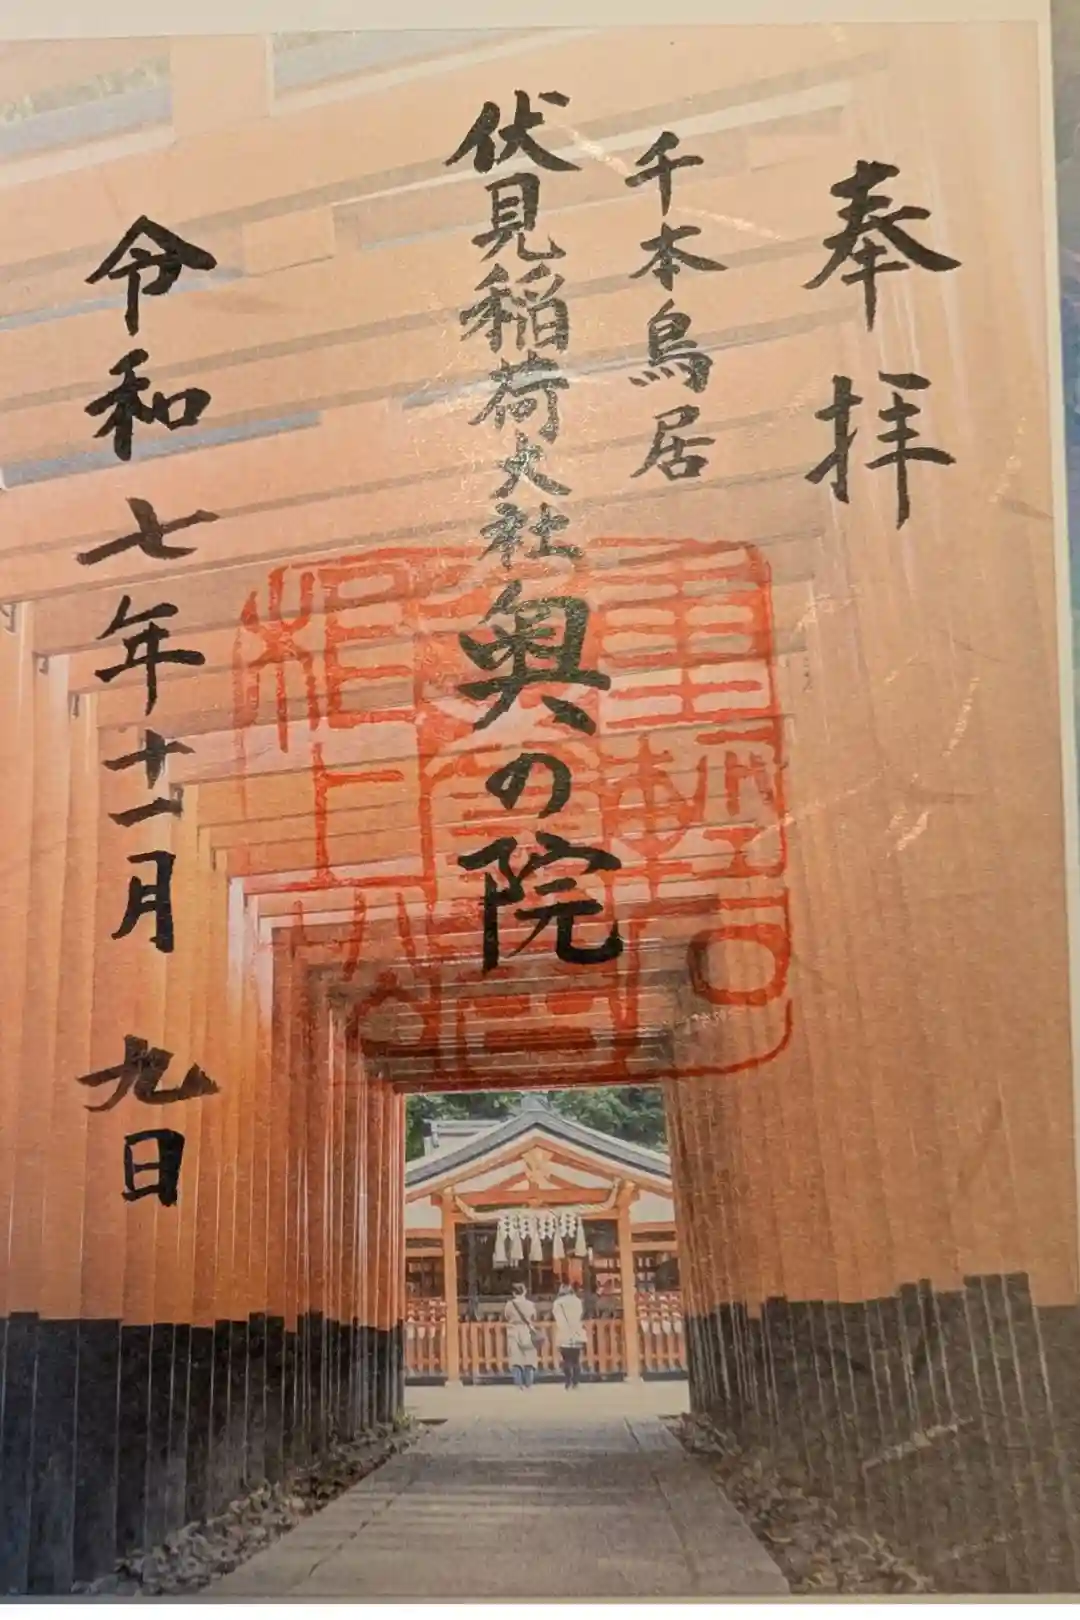 奉拝
千本鳥居
伏見稲荷大社奥の院
令和七年十一月九日